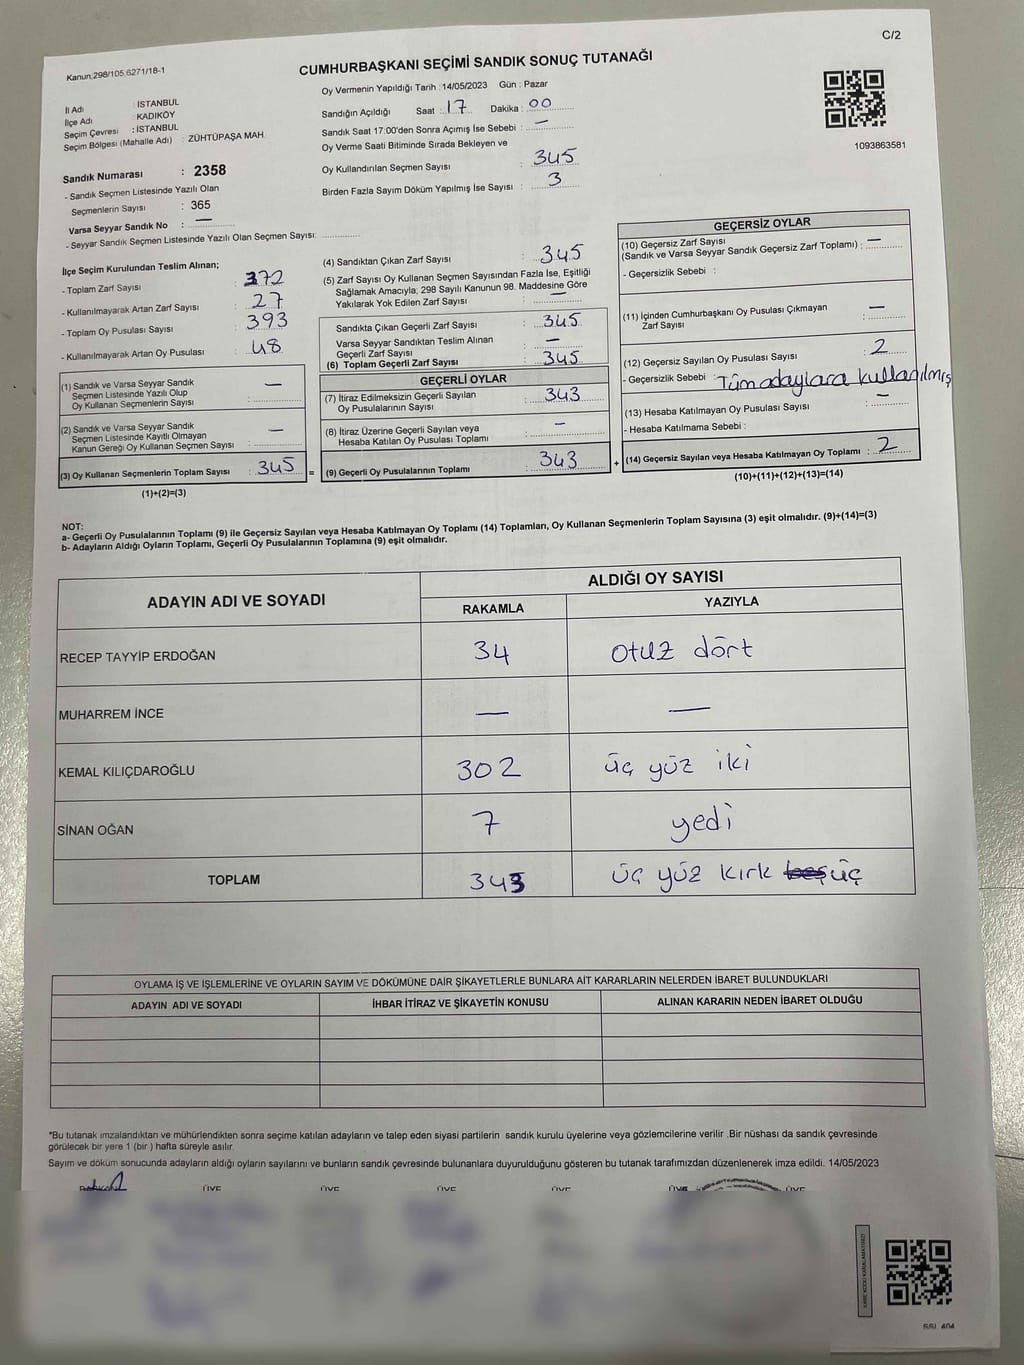 C/2
Kanun;298/105,6271/18-1
CUMHURBAŞKANI SEÇİMİ SANDIK SONUÇ TUTANAĞI
İl Adı : İSTANBUL
İlçe Adı : KADIKÖY
Seçim Çevresi : İSTANBUL
Seçim Bölgesi (Mahalle Adı) : ZÜHTÜPAŞA MAH.
Sandık Numarası : 2358
- Sandık Seçmen Listesinde Yazılı Olan
Seçmenlerin Sayısı : 365
Varsa Seyyar Sandık No : —
- Seyyar Sandık Seçmen Listesinde Yazılı Olan Seçmen Sayısı:
Oy Vermenin Yapıldığı Tarih : 14/05/2023 Gün : Pazar
Sandığın Açıldığı Saat : 17 Dakika : 00
Sandık Saat 17:00'den Sonra Açımış İse Sebebi : —
Oy Verme Saati Bitiminde Sırada Bekleyen ve
Oy Kullandırılan Seçmen Sayısı : 345
Birden Fazla Sayım Döküm Yapılmış İse Sayısı : 3
1093863581
İlçe Seçim Kurulundan Teslim Alınan;
- Toplam Zarf Sayısı : 372
- Kullanılmayarak Artan Zarf Sayısı : 27
- Toplam Oy Pusulası Sayısı : 393
- Kullanılmayarak Artan Oy Pusulası : 48
(1) Sandık ve Varsa Seyyar Sandık
Seçmen Listesinde Yazılı Olup
Oy Kullanan Seçmenlerin Sayısı : —
(2) Sandık ve Varsa Seyyar Sandık
Seçmen Listesinde Kayıtlı Olmayan
Kanun Gereği Oy Kullanan Seçmen Sayısı : —
(3) Oy Kullanan Seçmenlerin Toplam Sayısı : 345 =
(1)+(2)=(3)
(4) Sandıktan Çıkan Zarf Sayısı : 345
(5) Zarf Sayısı Oy Kullanan Seçmen Sayısından Fazla İse, Eşitliği
Sağlamak Amacıyla; 298 Sayılı Kanunun 98. Maddesine Göre
Yakılarak Yok Edilen Zarf Sayısı : —
Sandıkta Çıkan Geçerli Zarf Sayısı : 345
Varsa Seyyar Sandıktan Teslim Alınan
Geçerli Zarf Sayısı : —
(6) Toplam Geçerli Zarf Sayısı : 345
GEÇERLİ OYLAR
(7) İtiraz Edilmeksizin Geçerli Sayılan
Oy Pusulalarının Sayısı : 343
(8) İtiraz Üzerine Geçerli Sayılan veya
Hesaba Katılan Oy Pusulası Toplamı : —
(9) Geçerli Oy Pusulalarının Toplamı : 343 +
GEÇERSİZ OYLAR
(10) Geçersiz Zarf Sayısı
(Sandık ve Varsa Seyyar Sandık Geçersiz Zarf Toplamı) : —
- Geçersizlik Sebebi :
(11) İçinden Cumhurbaşkanı Oy Pusulası Çıkmayan
Zarf Sayısı : —
(12) Geçersiz Sayılan Oy Pusulası Sayısı : 2
- Geçersizlik Sebebi : Tüm adaylara kullanılmış
(13) Hesaba Katılmayan Oy Pusulası Sayısı : —
- Hesaba Katılmama Sebebi :
(14) Geçersiz Sayılan veya Hesaba Katılmayan Oy Toplamı : 2
(10)+(11)+(12)+(13)=(14)
NOT:
a- Geçerli Oy Pusulalarının Toplamı (9) ile Geçersiz Sayılan veya Hesaba Katılmayan Oy Toplamı (14) Toplamları, Oy Kullanan Seçmenlerin Toplam Sayısına (3) eşit olmalıdır. (9)+(14)=(3)
b- Adayların Aldığı Oyların Toplamı, Geçerli Oy Pusulalarının Toplamına (9) eşit olmalıdır.
ADAYIN ADI VE SOYADI
ALDIĞI OY SAYISI
RAKAMLA YAZIYLA
RECEP TAYYİP ERDOĞAN 34 otuz dört
MUHARREM İNCE — —
KEMAL KILIÇDAROĞLU 302 üç yüz iki
SİNAN OĞAN 7 yedi
TOPLAM 343 üç yüz kırk beş üç
OYLAMA İŞ VE İŞLEMLERİNE VE OYLARIN SAYIM VE DÖKÜMÜNE DAİR ŞİKAYETLERLE BUNLARA AİT KARARLARIN NELERDEN İBARET BULUNDUKLARI
ADAYIN ADI VE SOYADI İHBAR İTİRAZ VE ŞİKAYETİN KONUSU ALINAN KARARIN NEDEN İBARET OLDUĞU
*Bu tutanak imzalandıktan ve mühürlendikten sonra seçime katılan adayların ve talep eden siyasi partilerin sandık kurulu üyelerine veya gözlemcilerine verilir .Bir nüshası da sandık çevresinde
görülecek bir yere 1 (bir ) hafta süreyle asılır.
Sayım ve döküm sonucunda adayların aldığı oyların sayılarını ve bunların sandık çevresinde bulunanlara duyurulduğunu gösteren bu tutanak tarafımızdan düzenlenerek imza edildi. 14/05/2023
ÜYE ÜYE ÜYE ÜYE ÜYE ÜYE